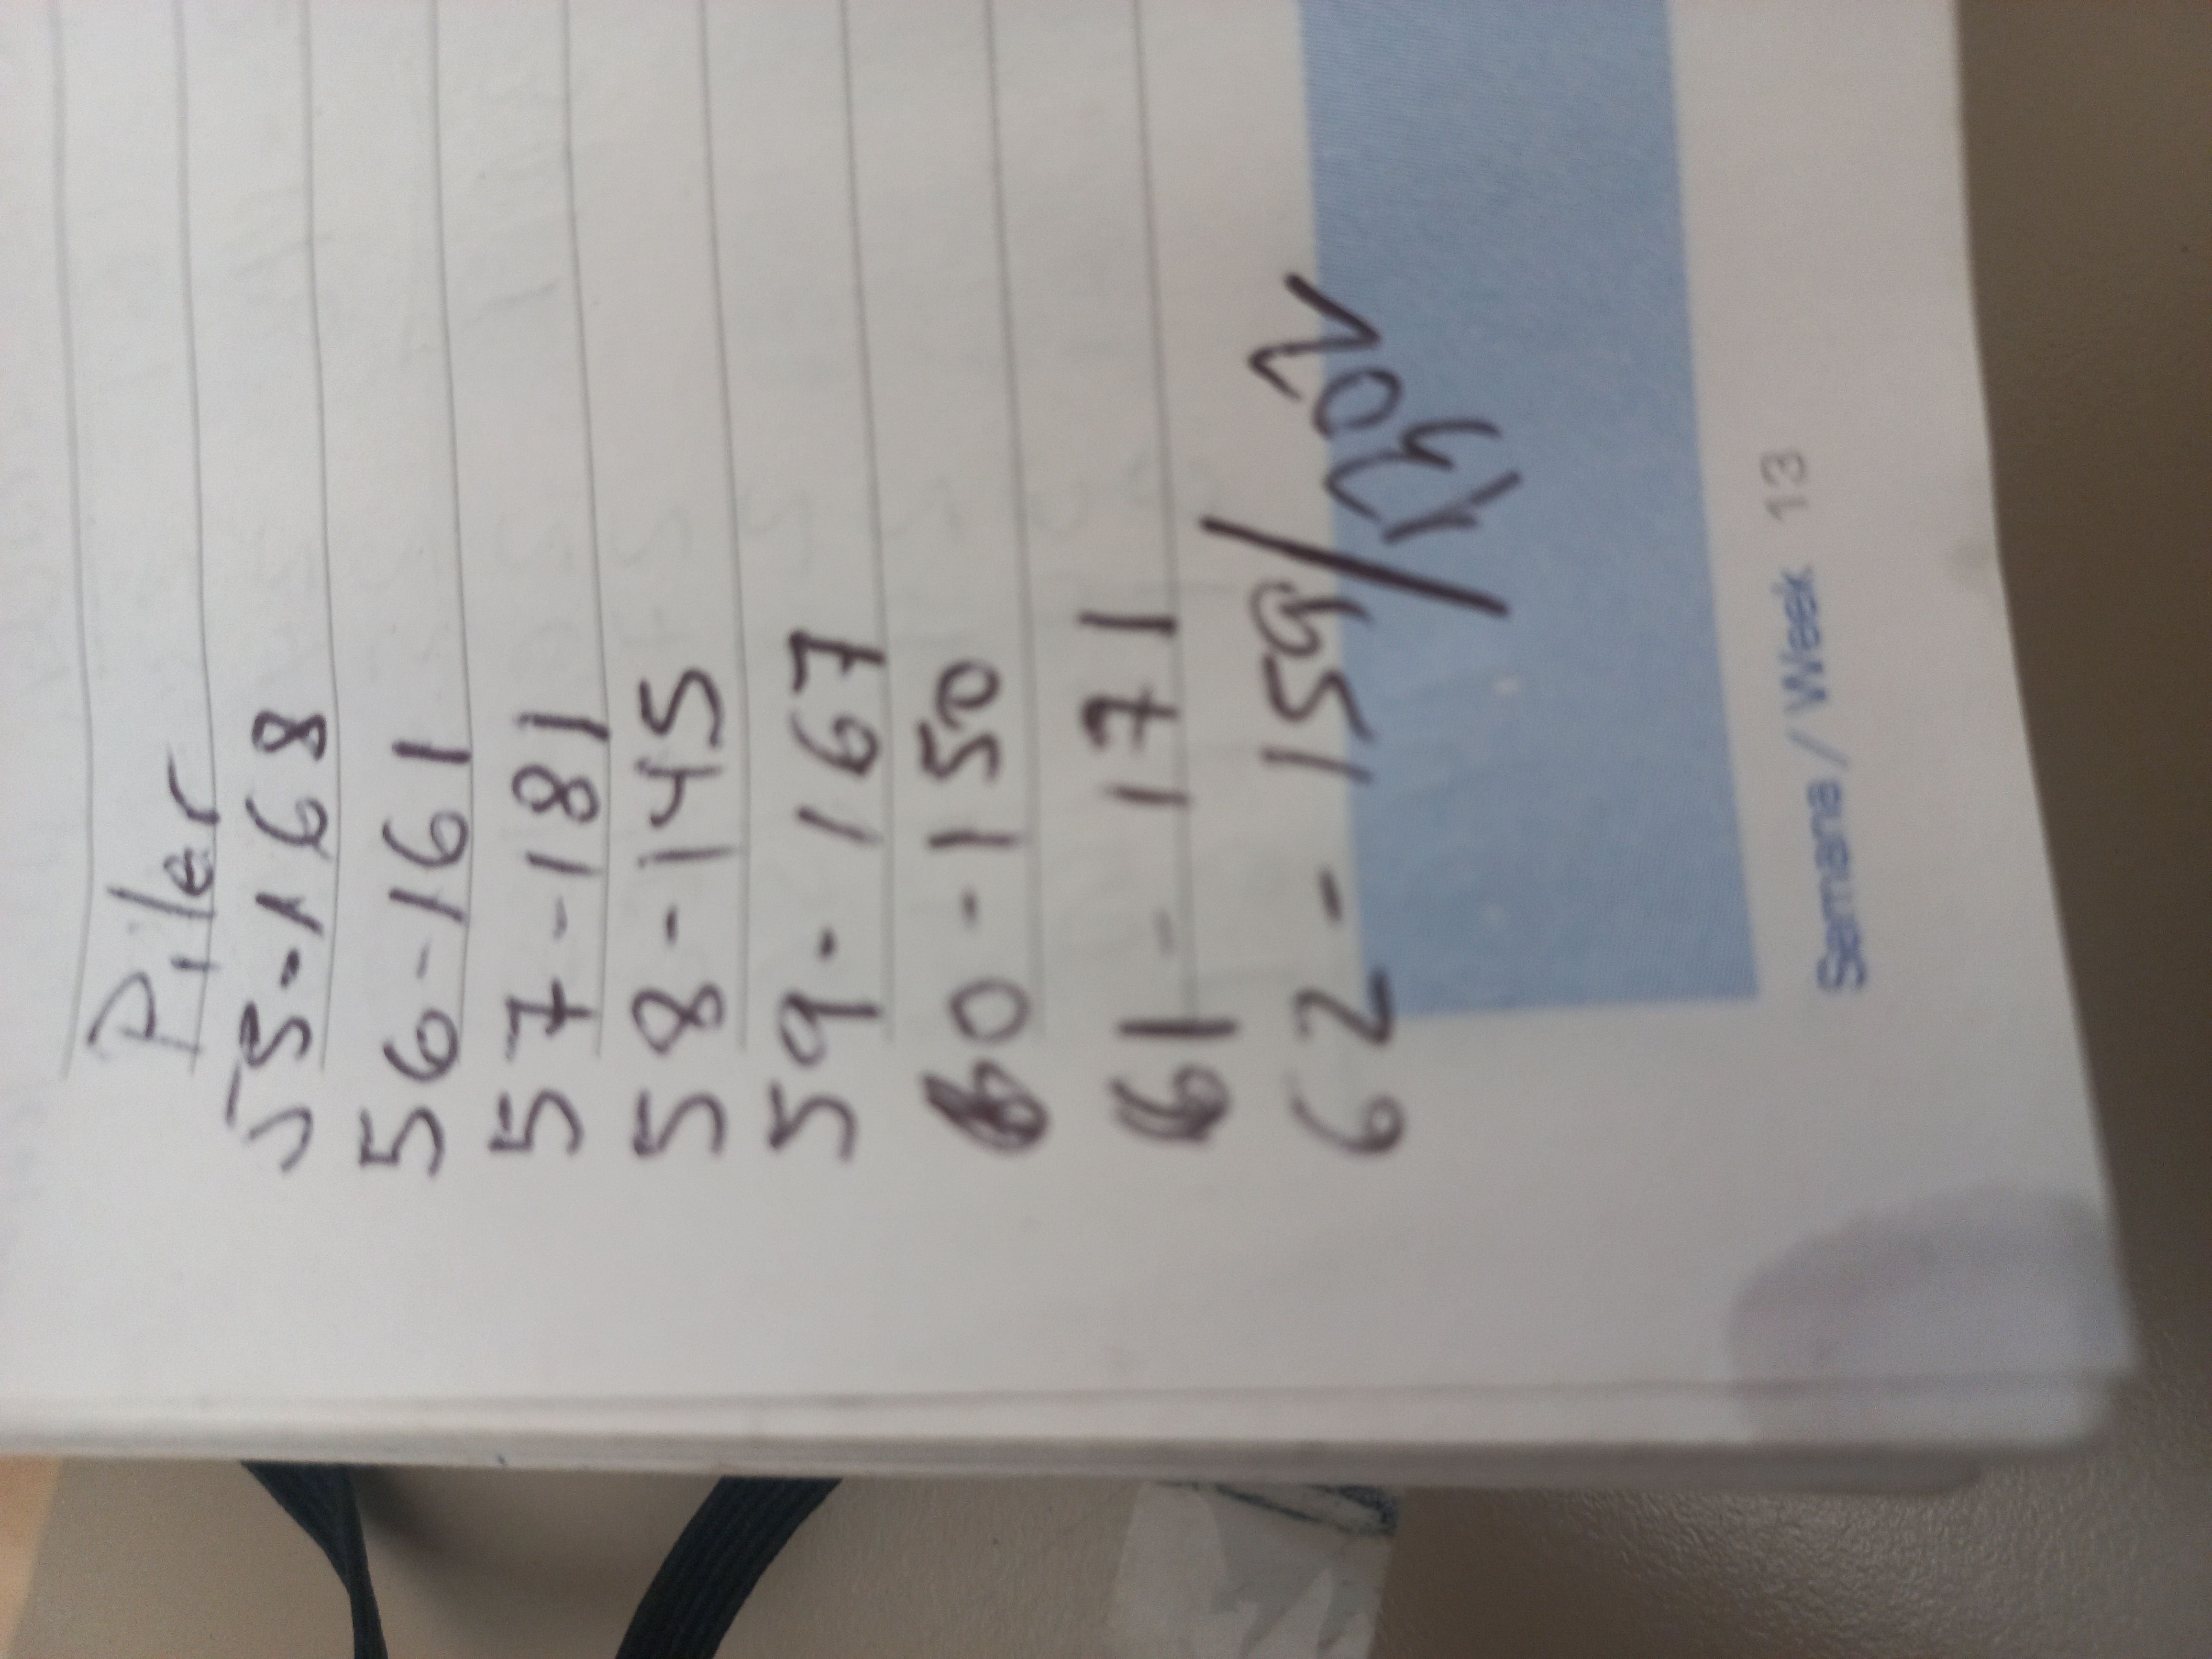 Piler
55-168
56-161
57-181
58-145
59-167
60-150
61-171
62-159/
Semana / Week 13